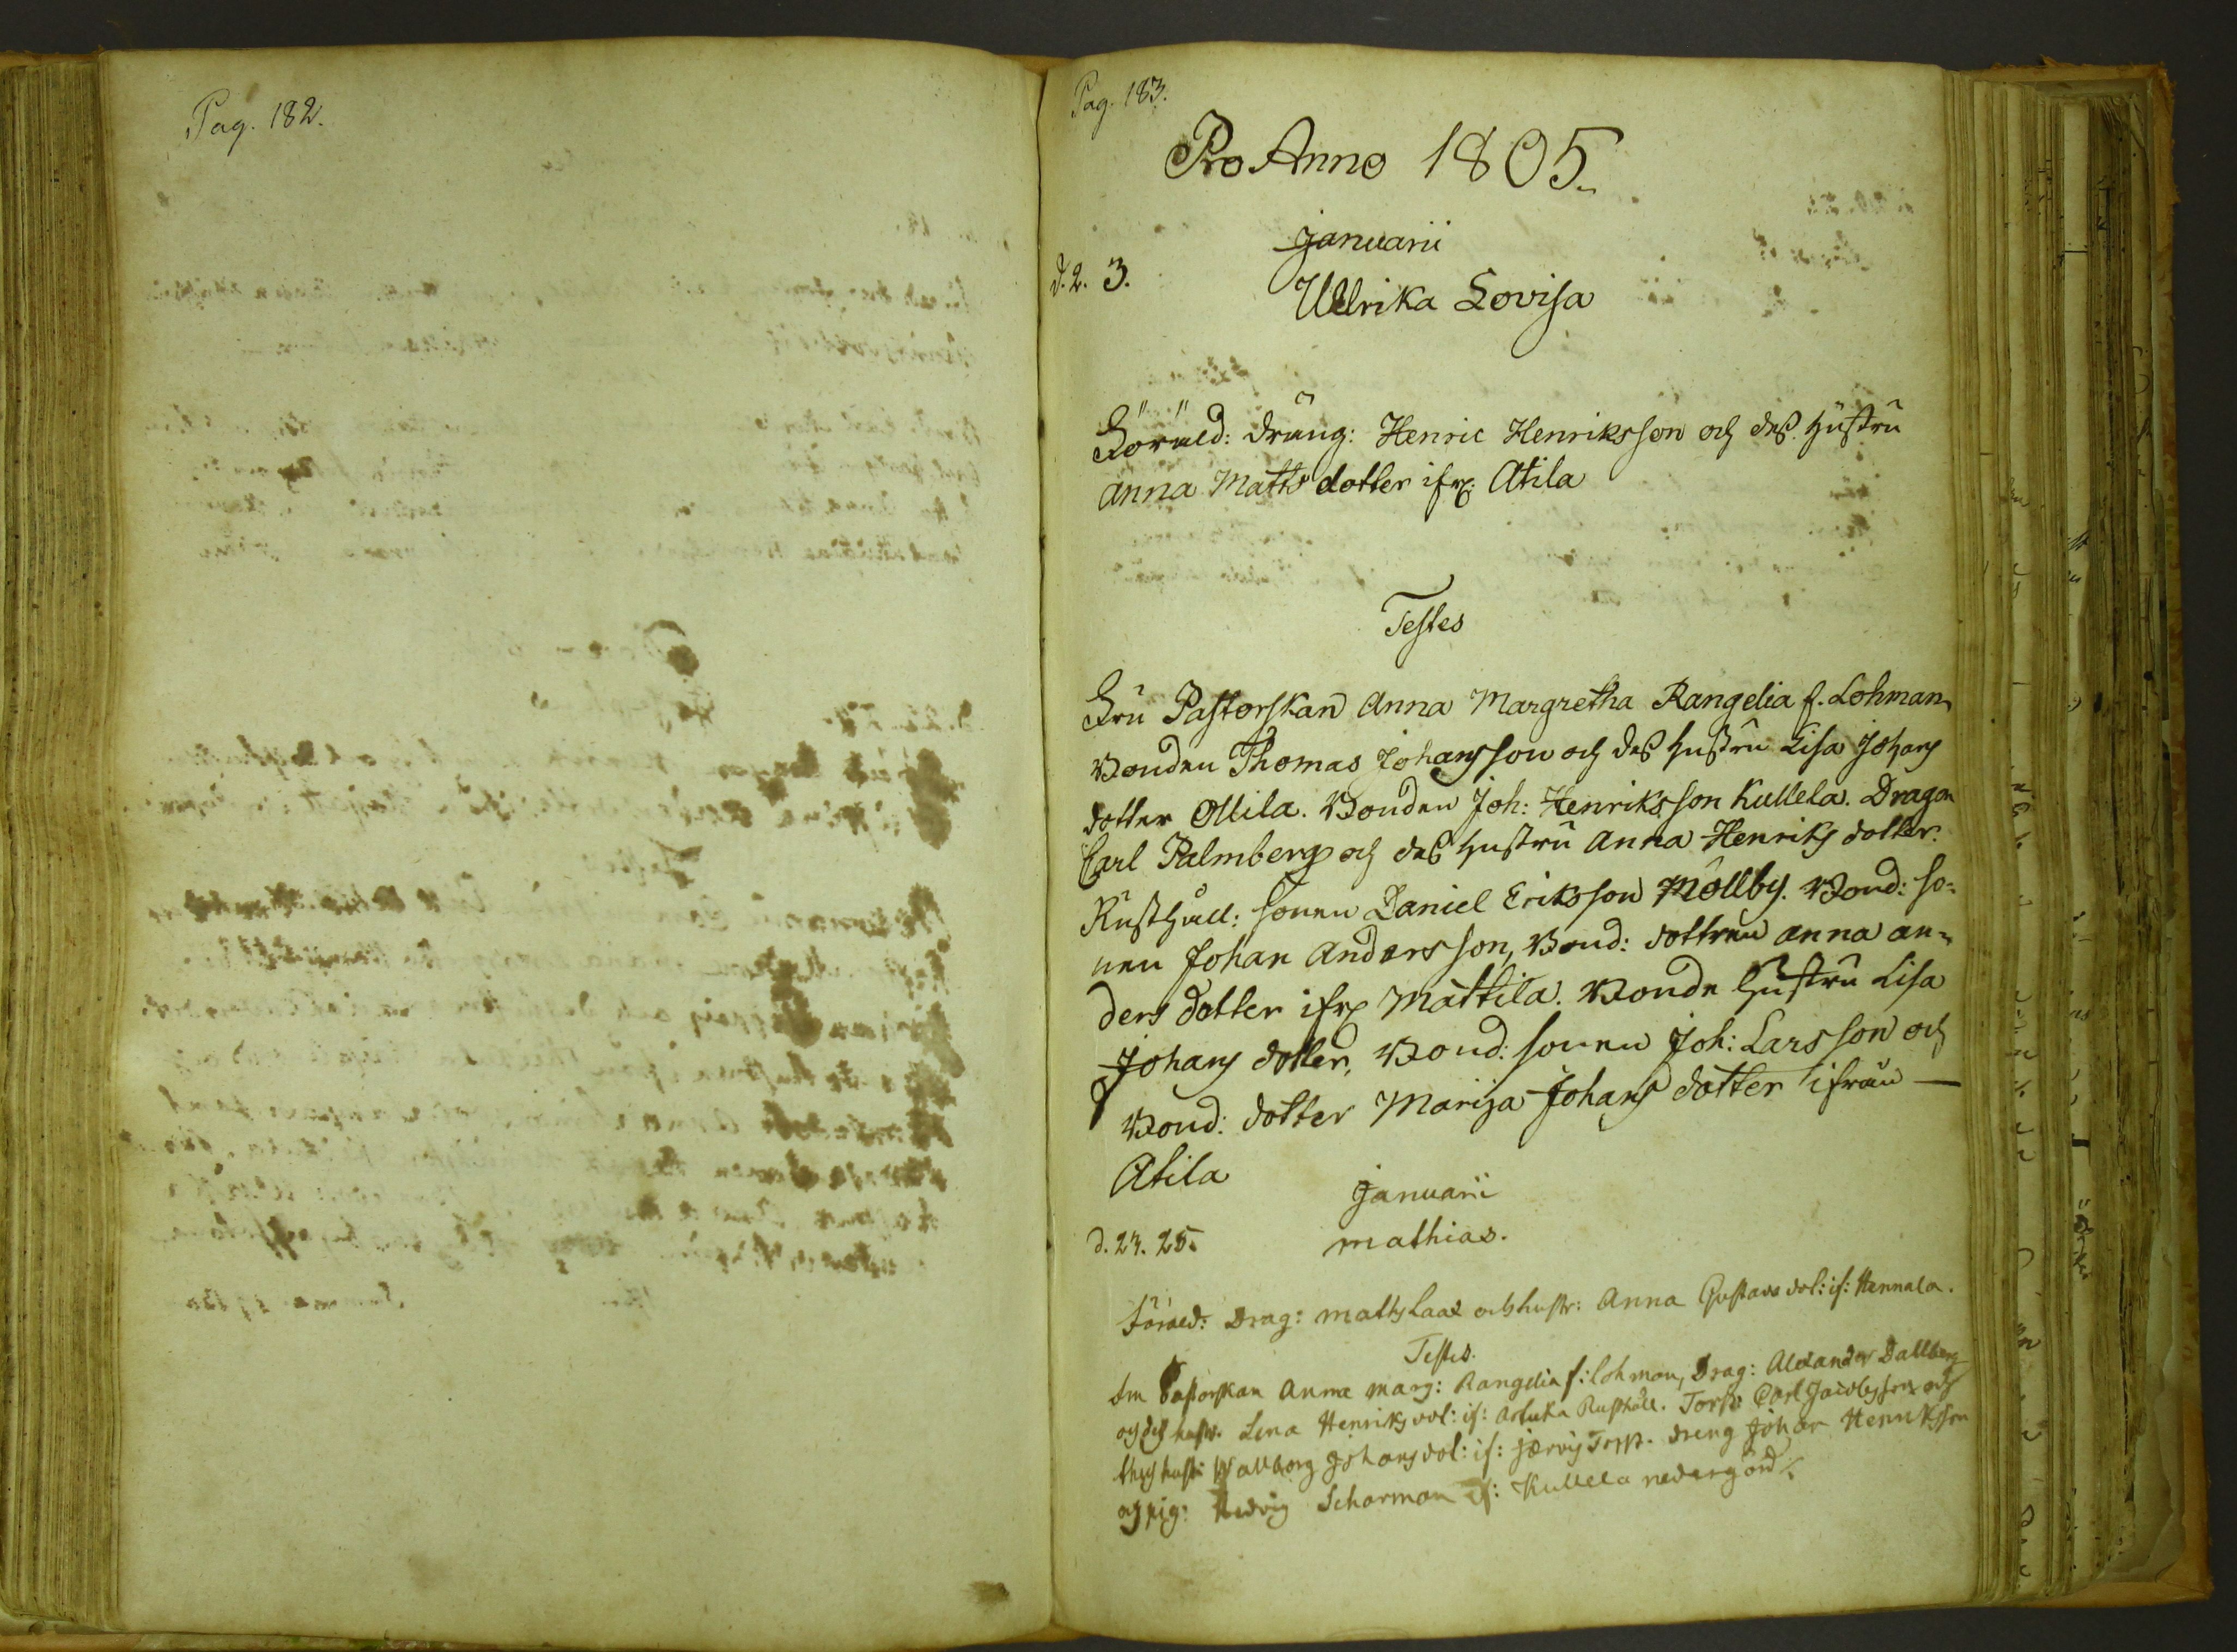 Pag. 182.
Pag. 183.
Pro Anno 1805.
Januarii
d. 2. 3.
Ullrika Lovisa
Föräld: dräng: Henric Henriksson och dess hustru
Anna Matts dotter ifr: Atila
Testes
Fru Pastorskan Anna Margretha Rangelia f. Lohman
Bonden Thomas Johansson och dess hustru Lisa Johans
dotter Ollila. Bonden Joh: Henriksson Kullela. Dragon
Carl Palmberg och dess hustru Anna Henriks dotter.
Rusthåll: sonen Daniel Eriksson Möllby. Bond: so=
nen Johan Andersson, Bond: dottren Anna An=
ders dotter ifr: Mattila. Bonde hustru Lisa
Johans dotter, Bond: sonen Joh: Larsson och
Bond: dotter Marija Johans dotter ifrån —
Atila
Januarii
d. 24. 25.
Mathias.
Föräld: Drag: Matts Laax och hustr: Anna Gustavs dot: if: Hennala.
Testes.
Pastorskan Anna Marg: Rangelia f: Lohman, Drag: Alexander Dallberg
och dess hustr. Lena Henriks dot: if: Artuka Rusthåll. Torp: Carl Jacobsson och
dess hustr: Wallborg Johans dot: if: Jærvis Torp. dreng Johan Henriksson
och pig: Hedvig Scharman if: Kullela nedergård.